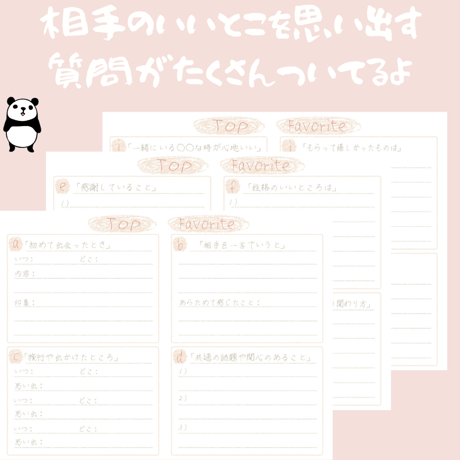 相手のいいとこを思い出す
質問がたくさんついてるよ
Top Favorite
i 「一緒にいる〇〇な時が心地いい」
j 「もらって嬉しかったものは」
Top Favorite
e 「感謝していること」
1)
f 「性格のいいところは」
1)
関わり方」
Top Favorite
a 「初めて出会ったとき」
いつ: どこ:
内容:
印象:
b 「相手を一言でいうと」
あらためて感じたこと:
c 「旅行や出かけたところ」
いつ: どこ:
思い出:
いつ: どこ:
思い出:
いつ: どこ:
思い出:
d 「共通の話題や関心のあること」
1)
2)
3)